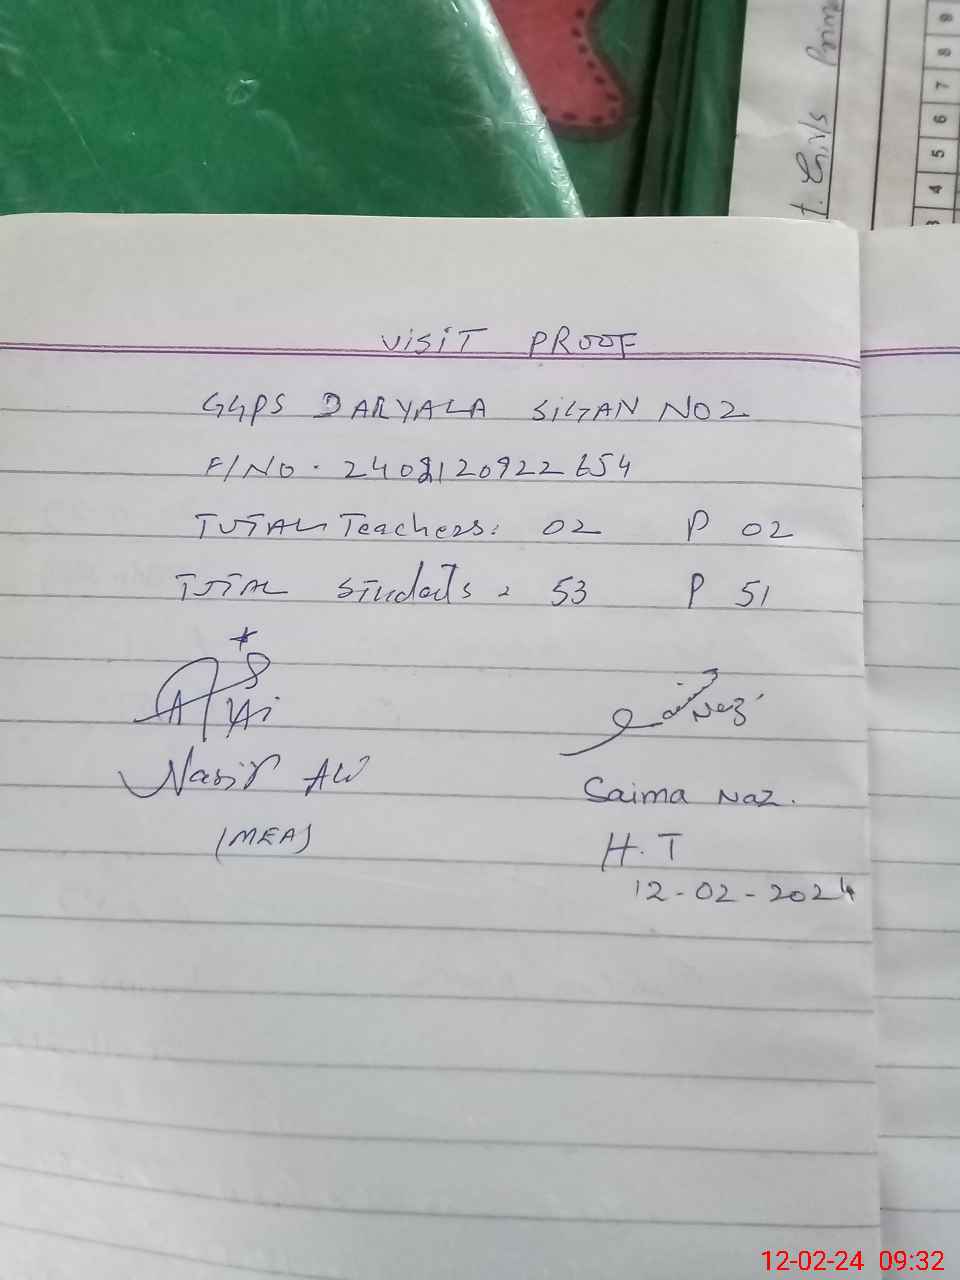 t. Girls
3 4 5 6 7 8 9
VISIT PROOF
GGPS DARYALA SIGAN NO2
F/NO. 2402120922654
TOTAL Teachers: 02 P 02
TOTAL Students: 53 P 51
Naz
Nasir Ali
Saima Naz.
(MEA)
H.T
12-02-2024
12-02-24 09:32